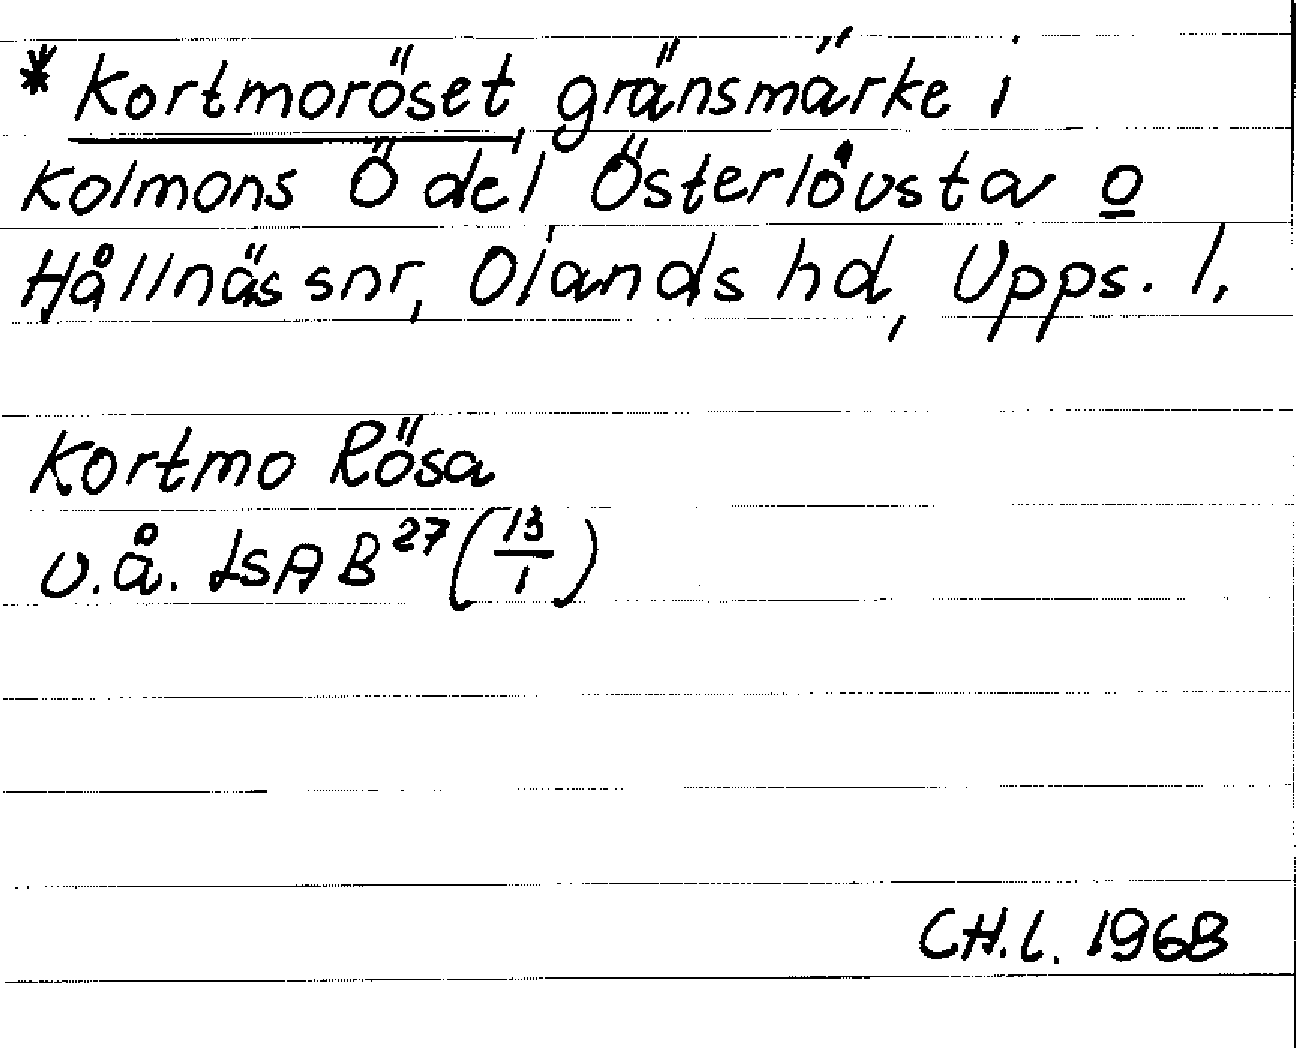 * Kortmoröset, gränsmärke i
Kolmons Ö del Österlövsta o
Hållnäs snr, Olands hd, Upps. l,
Kortmo Rösa
u.å. LSA B²⁷ (13/1)
CH.L. 1968